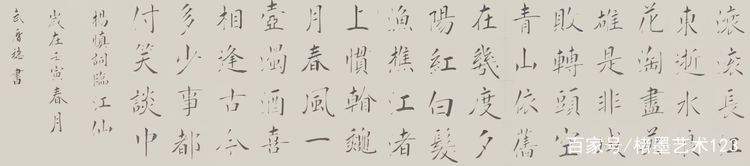 滚滚長江
東逝水浪
花淘盡英
雄是非成
敗轉頭空
青山依舊
在幾度夕
陽紅白髮
漁樵江渚
上慣翰龝
月春風一
壺濁酒喜
相逢古今
多少事都
付笑談中
楊慎詞臨江仙
歲在壬寅春月
書
百家号/楮墨艺术123